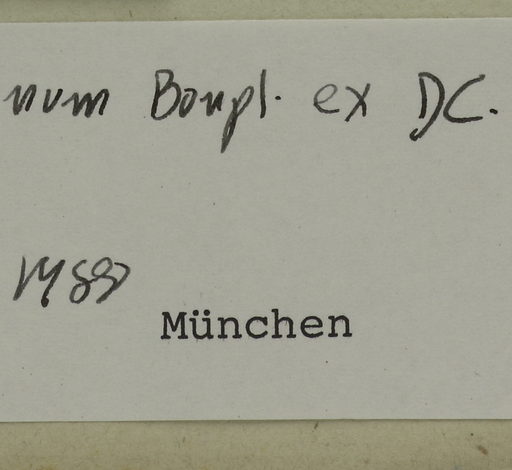 num Bonpl. ex DC.
München